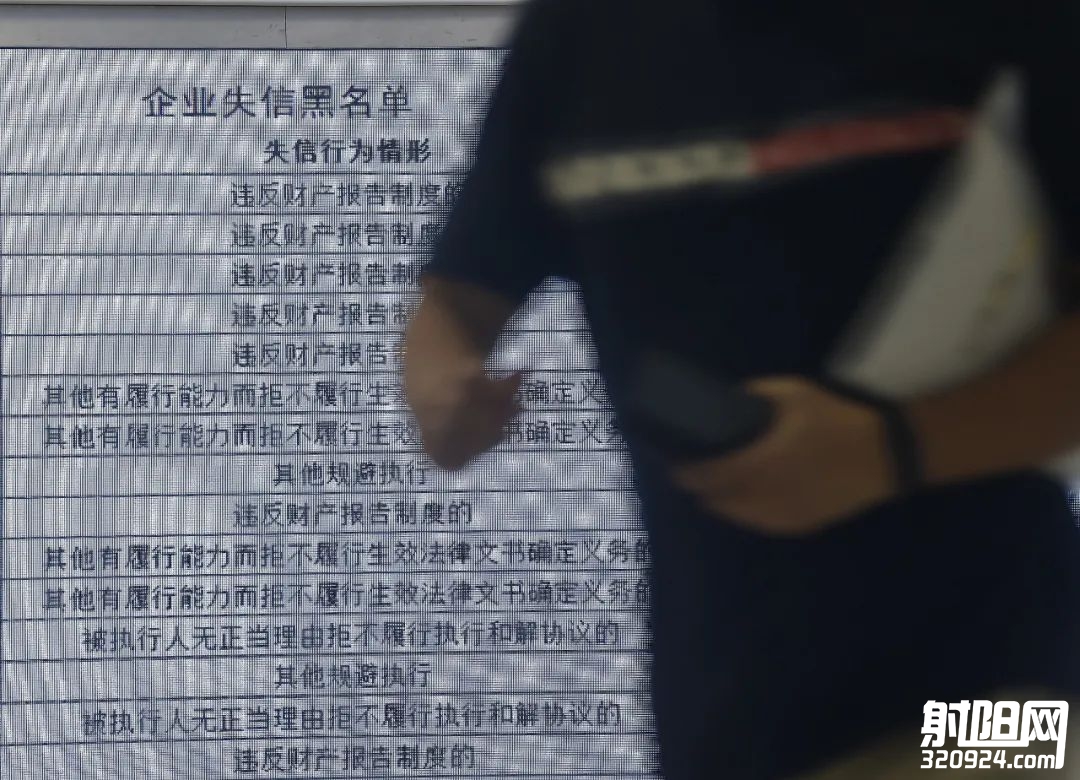 企业失信黑名单
失信行为情形
违反财产报告制度的
违反财产报告制度
违反财产报告制
违反财产报告制
违反财产报告
其他有履行能力而拒不履行生 确定义
其他有履行能力而拒不履行生效 书确定义务
其他规避执行
违反财产报告制度的
其他有履行能力而拒不履行生效法律文书确定义务的
其他有履行能力而拒不履行生效法律文书确定义务的
被执行人无正当理由拒不履行执行和解协议的
其他规避执行
被执行人无正当理由拒不履行执行和解协议的
违反财产报告制度的
射阳网
320924.com